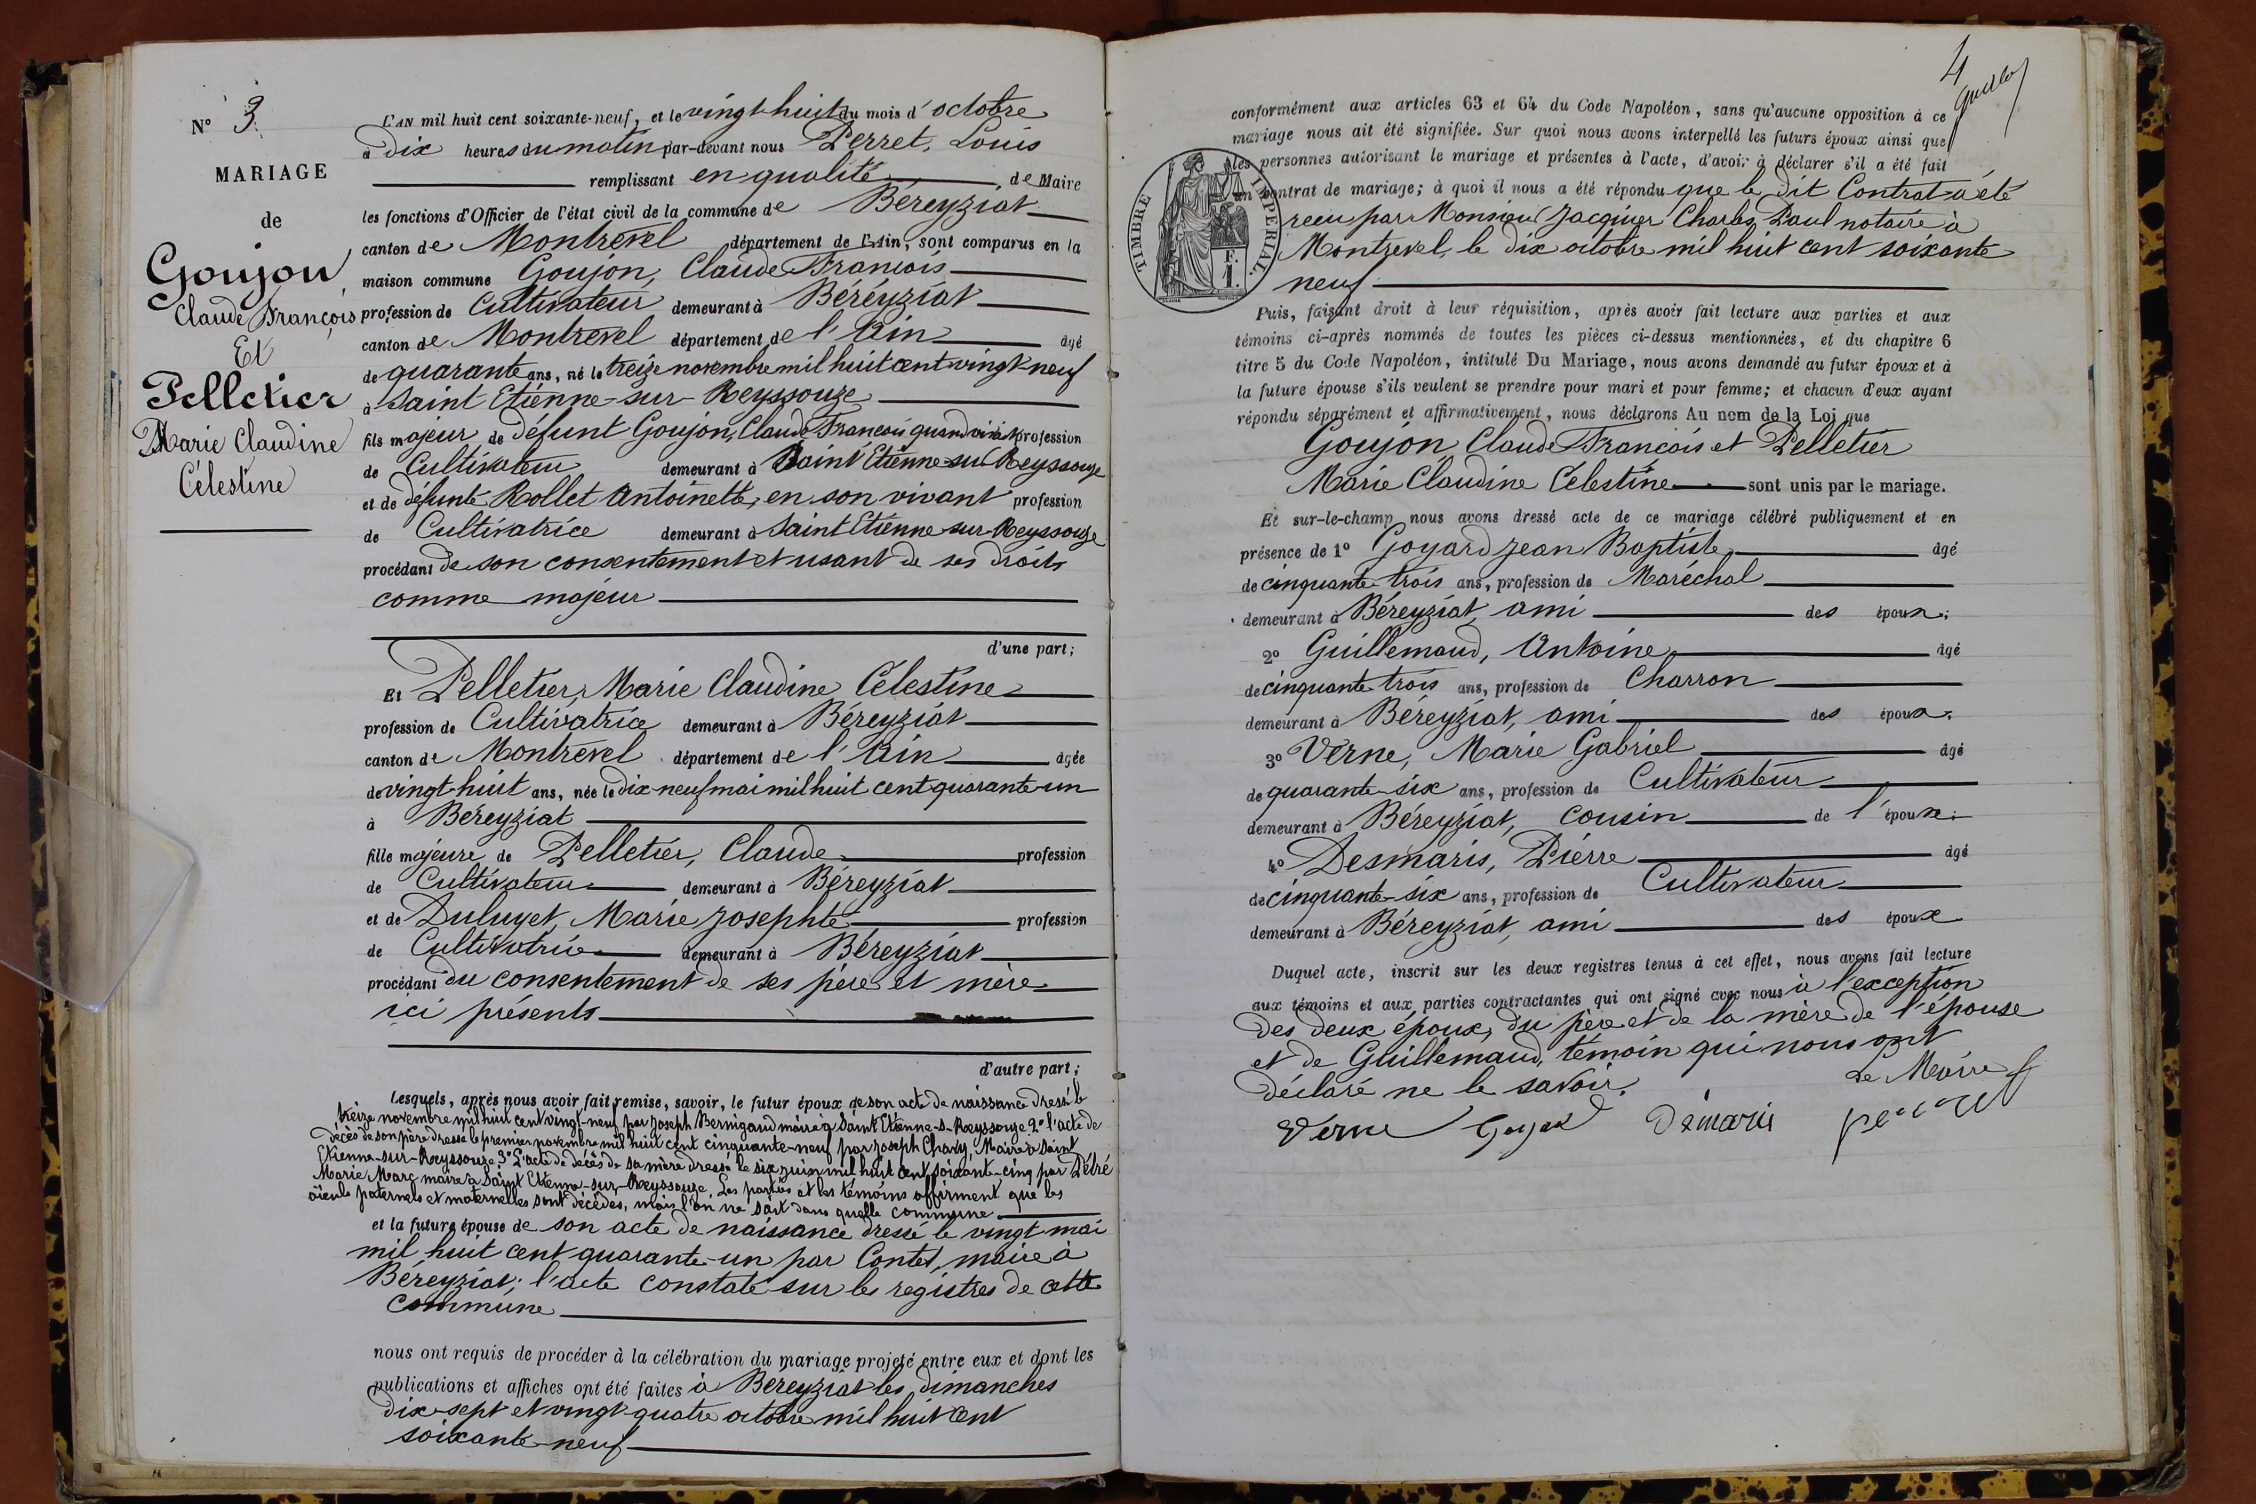 N° 3
MARIAGE
de
Goujon
Claude François
Et
Pelletier
Marie Claudine
Célestine
L'AN mil huit cent soixante-neuf, et le vingt-huit du mois d'octobre
à dix heures du matin par-devant nous Perret, Louis
remplissant en qualité de Maire
les fonctions d'Officier de l'état civil de la commune de Béreyziat
canton de Montrevel département de l'Ain, sont comparus en la
maison commune Goujon, Claude François
profession de Cultivateur demeurant à Béréyziat
canton de Montrevel département de l'Ain âgé
de quarante ans, né le treize novembre mil huit cent vingt-neuf
à Saint Etienne-sur-Reyssouze
fils majeur de défunt Goujon, Claude François quand vivait profession
de Cultivateur demeurant à Saint Etienne-sur Reyssouze
et de défunte Rollet Antoinette, en son vivant profession
de Cultivatrice demeurant à Saint Etienne-sur-Reyssouze
procédant de son consentement et usant de ses droits
comme majeur
d'une part;
Et Pelletier, Marie Claudine Célestine
profession de Cultivatrice demeurant à Béreyziat
canton de Montrevel département de l'Ain âgée
de vingt-huit ans, née le dix-neuf mai mil huit cent quarante-un
à Béreyziat
fille majeure de Pelletier, Claude profession
de Cultivateur demeurant à Béreyziat
et de Duluyet, Marie Josephte profession
de Cultivatrice demeurant à Béreyziat
procédant du consentement de ses père et mère
ici présents
d'autre part;
Lesquels, après nous avoir fait remise, savoir, le futur époux de son acte de naissance dressé le
treize novembre mil huit cent vingt-neuf par Joseph Bernigaud maire à Saint Etienne-s-Reyssouze 2° l'acte de
décès de son père dressé le premier novembre mil huit cent cinquante-neuf par Joseph Chavy, Maire à Saint
Etienne-sur-Reyssouze 3° L'acte de décès de sa mère dressé le six juin mil huit cent soixante-cinq par Détré
Marie Marc maire à Saint Etienne-sur-Reyssouze, Les parties et les témoins affirment que les
aïeuls paternels et maternelles sont décédés, mais l'on ne sait dans quelle commune
et la future épouse de son acte de naissance dressé le vingt mai
mil huit cent quarante-un par Contet, maire à
Béreyziat; l'acte constaté sur les registres de cette
commune
nous ont requis de procéder à la célébration du mariage projeté entre eux et dont les
publications et affiches ont été faites à Béreyziat les dimanches
dix-sept et vingt-quatre octobre mil huit cent
soixante-neuf
4
conformément aux articles 63 et 64 du Code Napoléon, sans qu'aucune opposition à ce
mariage nous ait été signifiée. Sur quoi nous avons interpellé les futurs époux ainsi que
les personnes autorisant le mariage et présentes à l'acte, d'avoir à déclarer s'il a été fait
un contrat de mariage; à quoi il nous a été répondu que le dit Contrat a été
recu par Monsieur Jacquier Charles Paul notaire à
Montrevel, le dix octobre mil huit cent soixante
neuf
TIMBRE IMPERIAL.
F.
1.
Puis, faisant droit à leur réquisition, après avoir fait lecture aux parties et aux
témoins ci-après nommés de toutes les pièces ci-dessus mentionnées, et du chapitre 6
titre 5 du Code Napoléon, intitulé Du Mariage, nous avons demandé au futur époux et à
la future épouse s'ils veulent se prendre pour mari et pour femme; et chacun d'eux ayant
répondu séparément et affirmativement, nous déclarons Au nom de la Loi que
Goujon, Claude François et Pelletier
Marie Claudine Célestine sont unis par le mariage.
Et sur-le-champ nous avons dressé acte de ce mariage célébré publiquement et en
présence de 1° Goyard Jean Baptiste, âgé
de cinquante-trois ans, profession de Maréchal
demeurant à Béreyziat, ami des époux;
2° Guillemaud, Antoine âgé
de cinquante trois ans, profession de Charron
demeurant à Béreyziat, ami des époux;
3° Verne, Marie Gabriel âgé
de quarante-six ans, profession de Cultivateur
demeurant à Béreyziat, cousin de l'épouse;
4° Desmaris, Pierre âgé
de cinquante-six ans, profession de Cultivateur
demeurant à Béreyziat, ami des époux
Duquel acte, inscrit sur les deux registres tenus à cet effet, nous avons fait lecture
aux témoins et aux parties contractantes qui ont signé avec nous à l'exception
des deux époux, du père et de la mère de l'épouse
et de Guillemaud, témoin qui nous ont
déclaré ne le savoir.
Le Maire
Verne Goyard Démaris perret